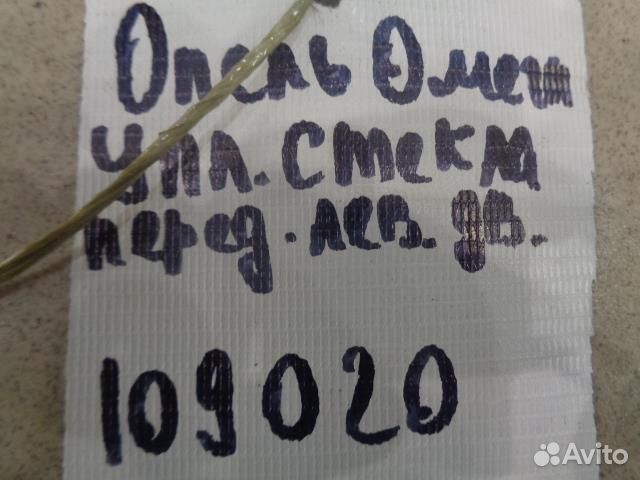 Опель Омега
Упл. стекла
перед. лев. дв.
109020
Avito